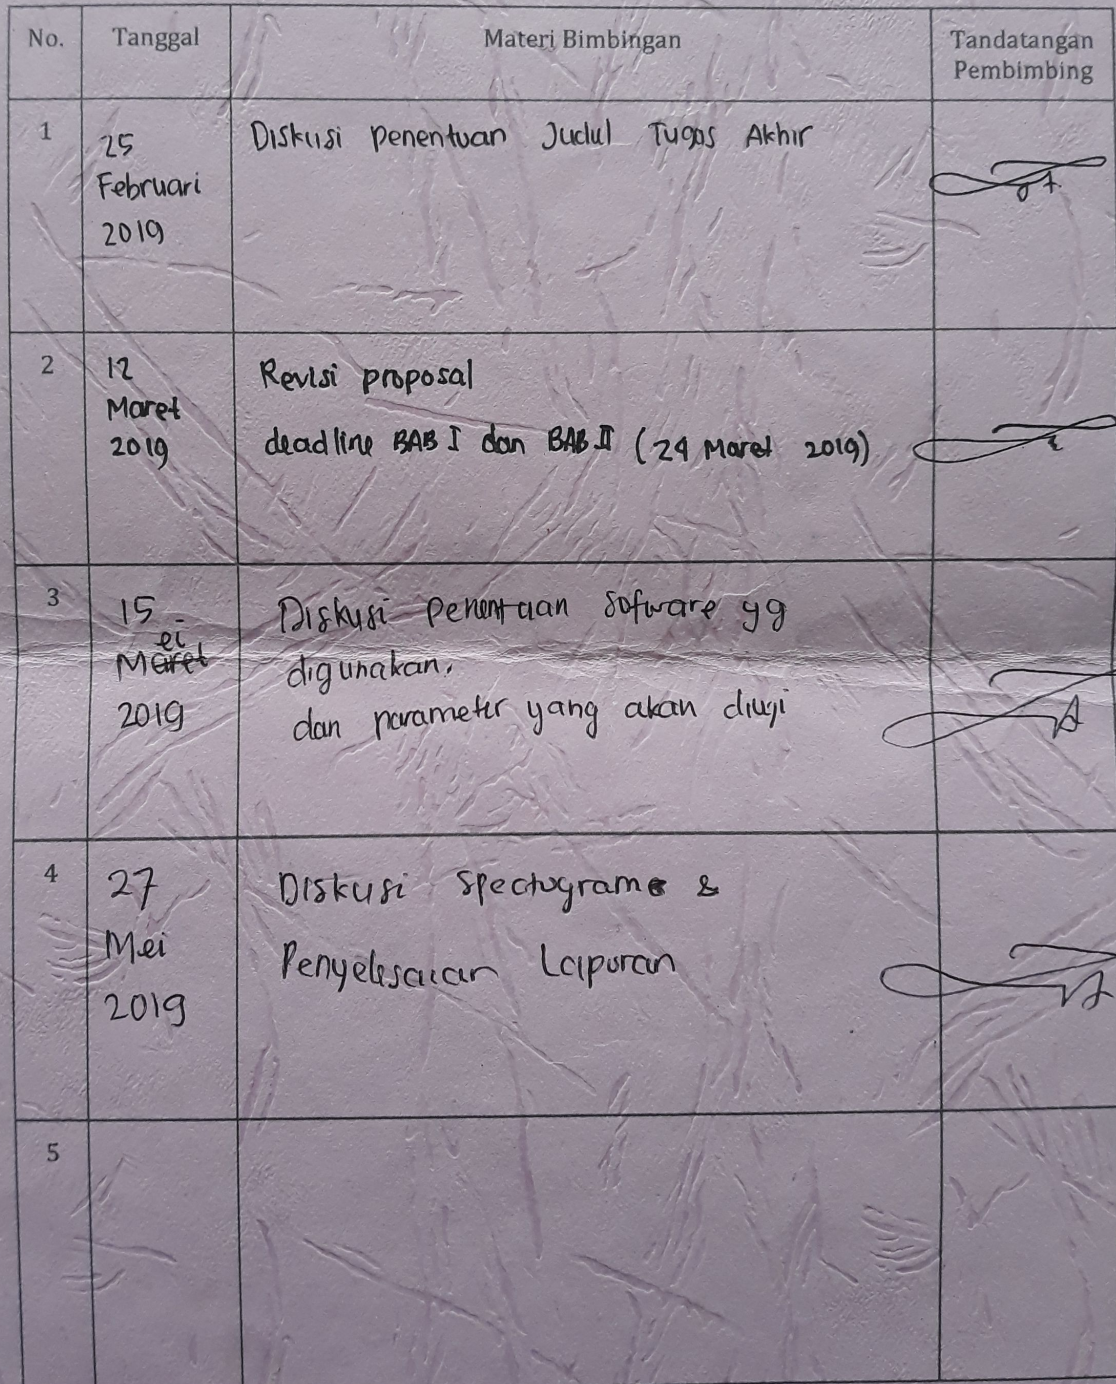 No. Tanggal Materi Bimbingan Tandatangan
Pembimbing
1
25
Februari
2019
Diskusi penentuan Judul Tugas Akhir
2
12
Maret
2019
Revisi proposal
deadline BAB I dan BAB II (24 Maret 2019)
3
15
ei
Maret
2019
Diskusi penentuan sofware yg
digunakan.
dan parameter yang akan diuji
4
27
Mei
2019
Diskusi spectrogram &
Penyelesaian Laporan
5